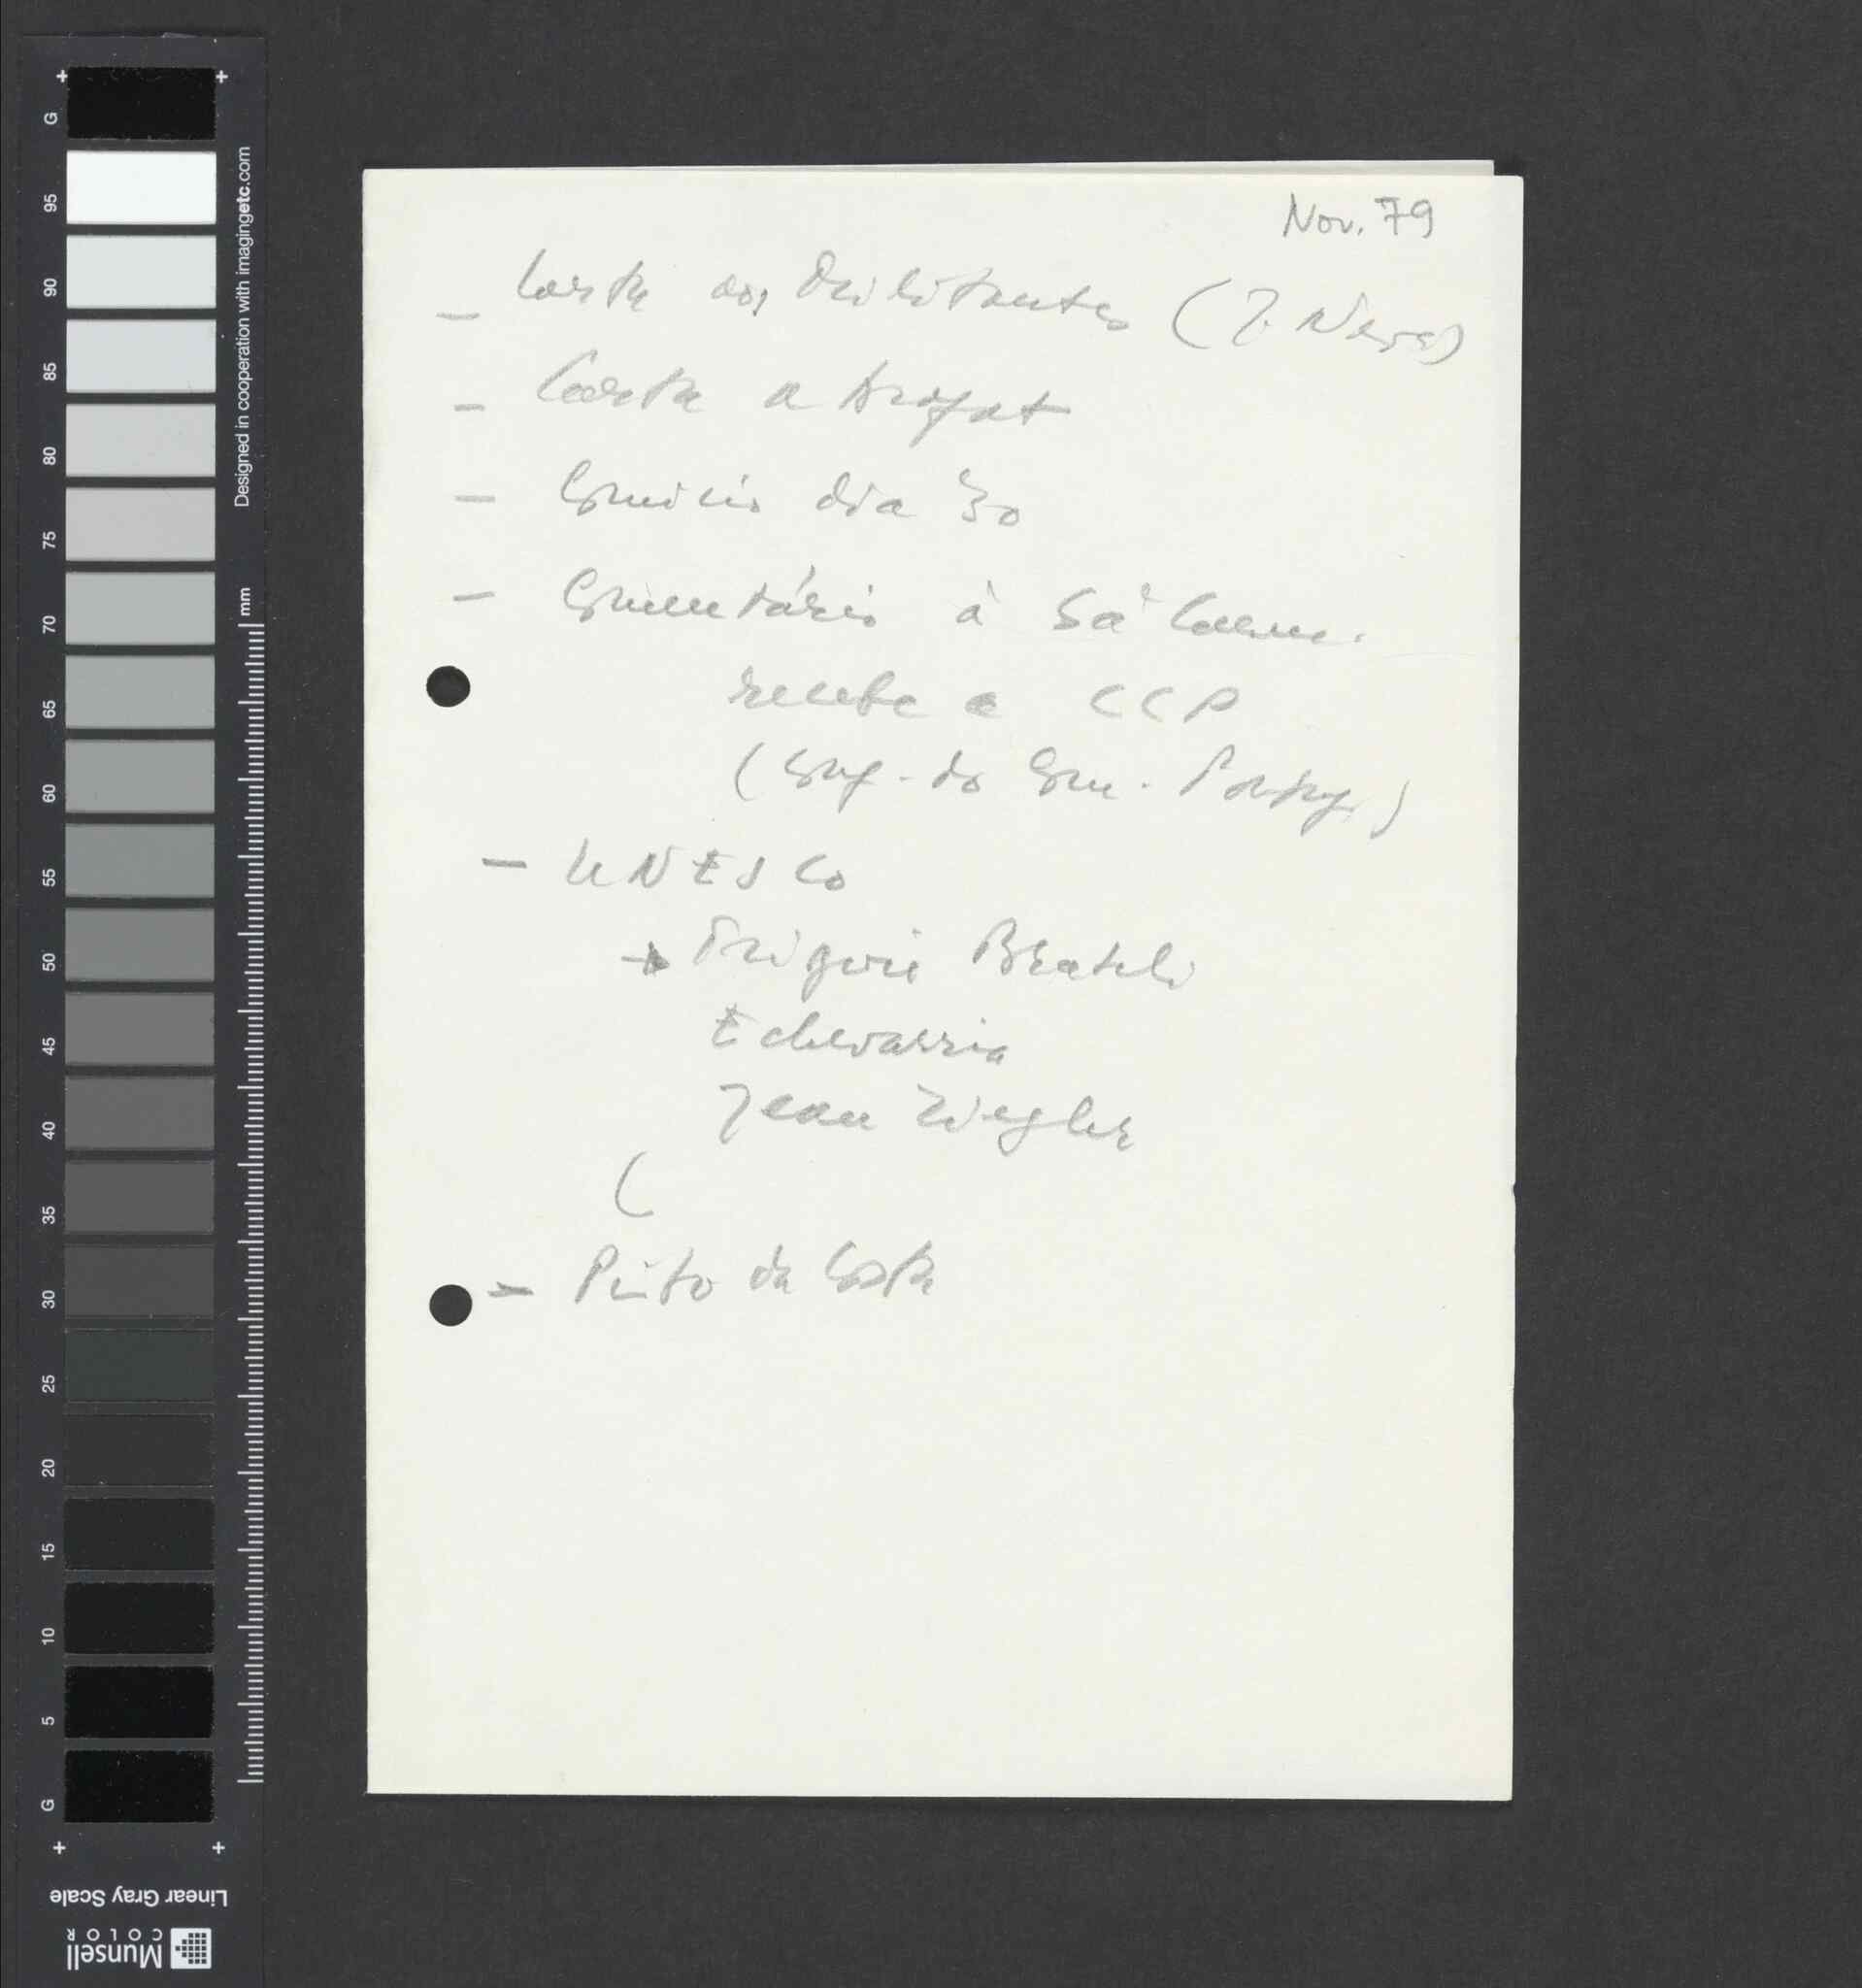 Nov. 79
– Carta aos Militantes (J. Neves)
– Carta a Arafat
– Comício dia 30
– Comentário à Sá Carne.
recebe a CCP
(Conf. do Com. Portug.)
– UNESCO
→ Trigvie Brateli
Echevarria
Jean Ziegler
(
– Pinto da Costa
G
95
90
85
80
75
70
65
60
55
50
45
40
35
30
25
20
15
10
5
G
Designed in cooperation with imagingetc.com
mm
Linear Gray Scale
Munsell
COLOR